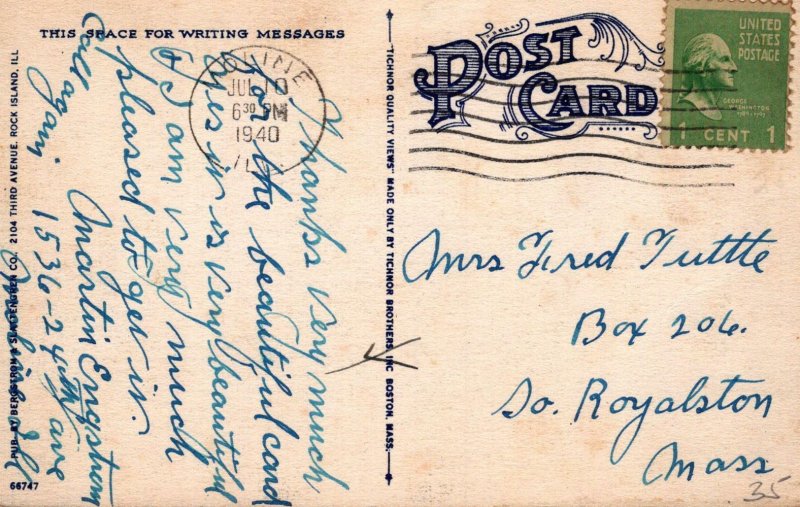 THIS SPACE FOR WRITING MESSAGES
POST CARD
UNITED
STATES
POSTAGE
GEORGE
WASHINGTON
1 CENT 1
MOLINE
JUL 10
6 30 PM
1940
ILL.
Thanks very much
for the beautiful card
Yes it is very beautiful
& I am very much
pleased to get it.
Call again. Martin Engstrom
1536-24th ave
Moline Ill
Mrs Fred Tuttle
Box 206.
So. Royalston
Mass
35
"TICHNOR QUALITY VIEWS" MADE ONLY BY TICHNOR BROTHERS INC BOSTON, MASS.
PUB. BY BERGSTROM & SLATTENGREN CO. 2104 THIRD AVENUE, ROCK ISLAND, ILL
66747